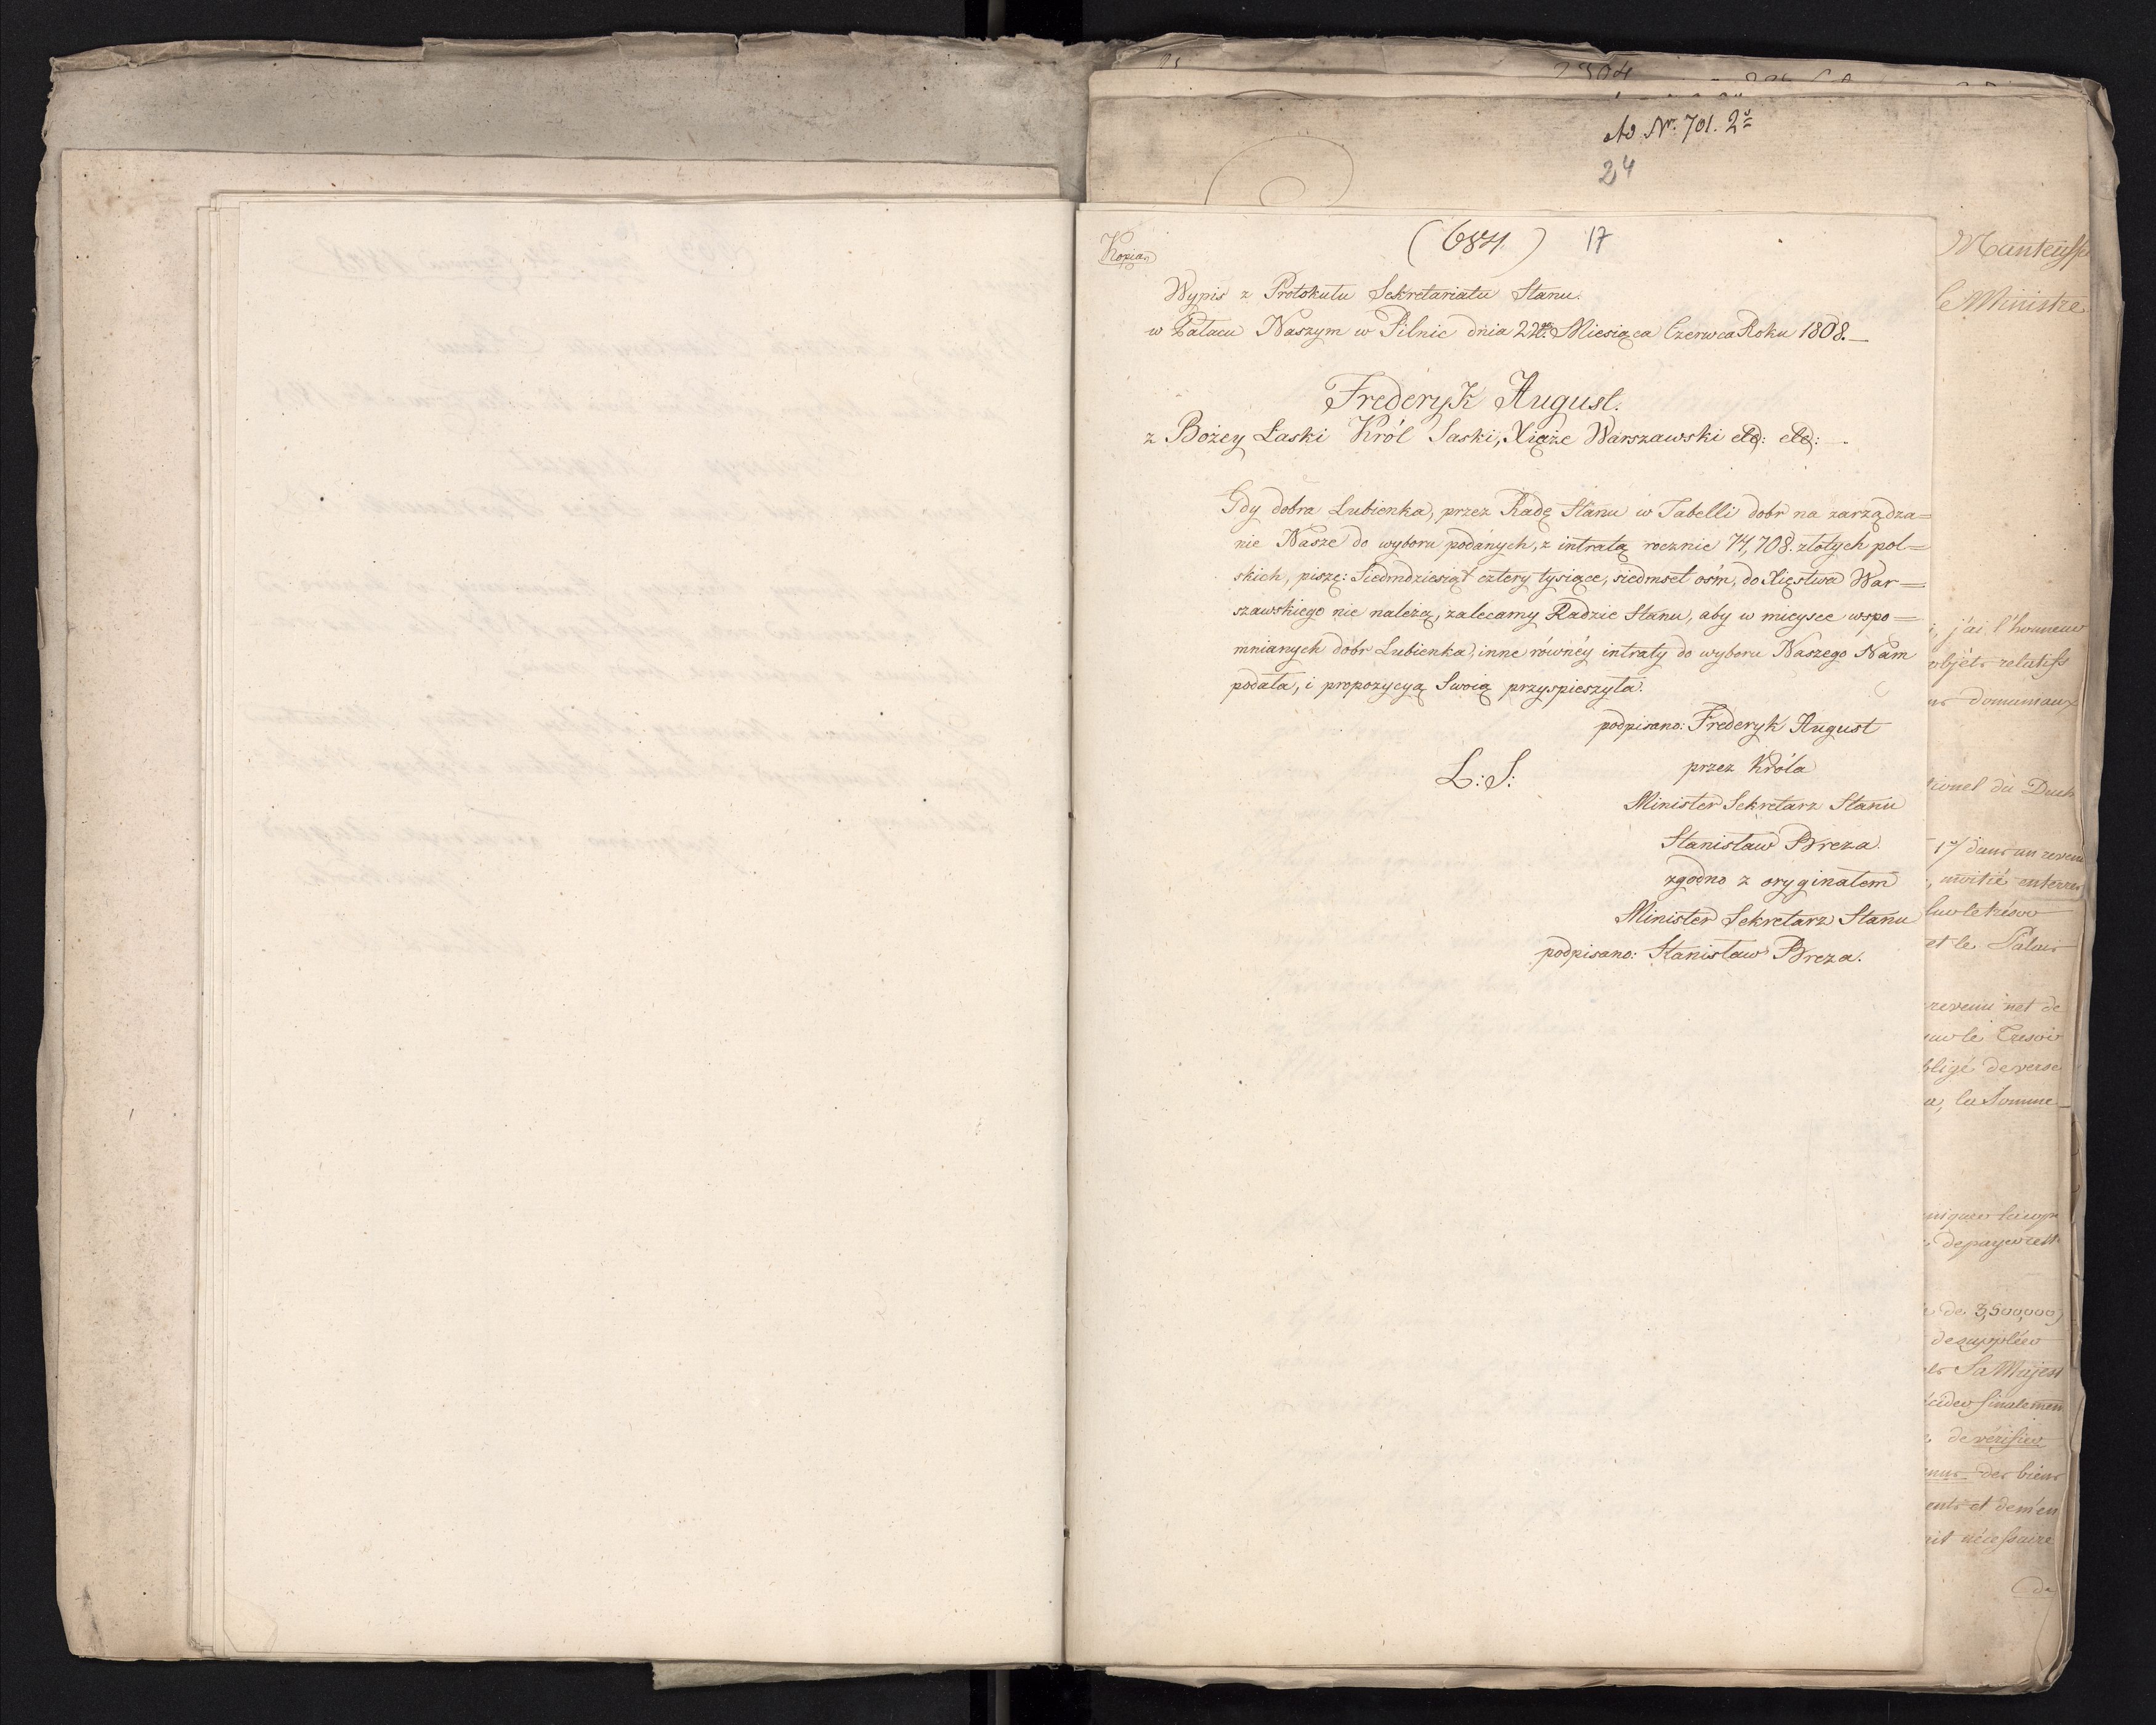 Ad Nr. 701. 2
24
Kopia
(684.) 17
Wypis z Protokułu Sekretariatu Stanu.
w Pałacu Naszym w Pilnic dnia 22go Miesiąca Czerwca Roku 1808.—
Frederyk August.
z Bożey Łaski Król Saski, Xiąże Warszawski etc: etc:
Gdy dobra Lubienka, przez Radę Stanu w Tabelli dobr na zarządza=
nie Nasze do wyboru podanych, z intratą rocznie 74,708. złotych pol=
skich, piszę: Siedmdziesiąt cztery tysiące, siedmset ośm, do Xięstwa War=
szawskiego nie należą, zalecamy Radzie Stanu, aby w mieysce wspo=
mnianych dobr Lubienka, inne równéy intraty do wyboru Naszego Nam
podała, i propozycyą Swoią przyspieszyła.
podpisano: Frederyk August
przez Króla
L: S:
Minister Sekretarz Stanu
Stanisław Breza.
zgodno z oryginałem
Minister Sekretarz Stanu
podpisano: Stanisław Breza.
le Ministre
j'ai l'honneur
objéts relatifs
du Duch
dans un revenu
et le Palais
revenu net de
le Tresor
la Somme
de 3,500,000
de suppléer
Sa Majest
de verifier
des biens
nécessaire